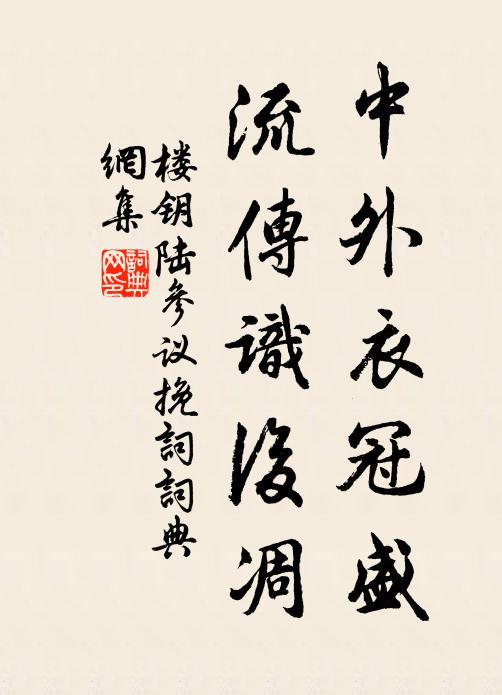 中外衣冠盛
流傳識後凋
楼钥陆参议挽詞詞典
網集
詞典网印